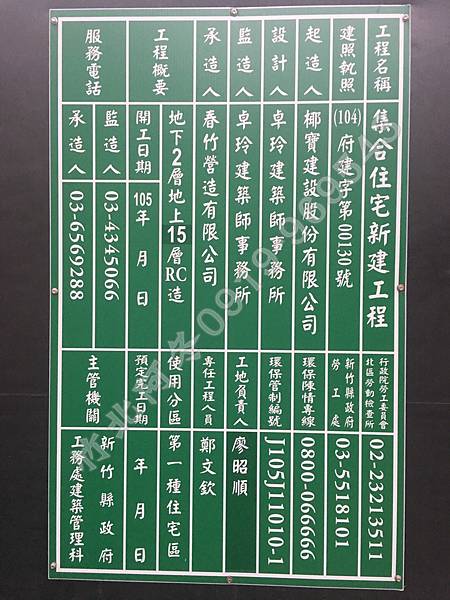 工程名稱
集合住宅新建工程
行政院勞工委員會
北區勞動檢查所
02-23213511
建照執照
(104)府建字第00130號
新竹縣政府
勞工處
03-5518101
起造人
椰寶建設股份有限公司
環保陳情專線
0800-066666
設計人
卓玲建築師事務所
環保管制編號
J105J11010-1
監造人
卓玲建築師事務所
工地負責人
廖昭順
承造人
春竹營造有限公司
專任工程人員
鄭文欽
工程概要
地下2層地上15層RC造
使用分區
第一種住宅區
開工日期
105年 月 日
預定完工日期
年 月 日
服務電話
監造人
03-4345066
承造人
03-6569288
主管機關
新竹縣政府
工務處建築管理科